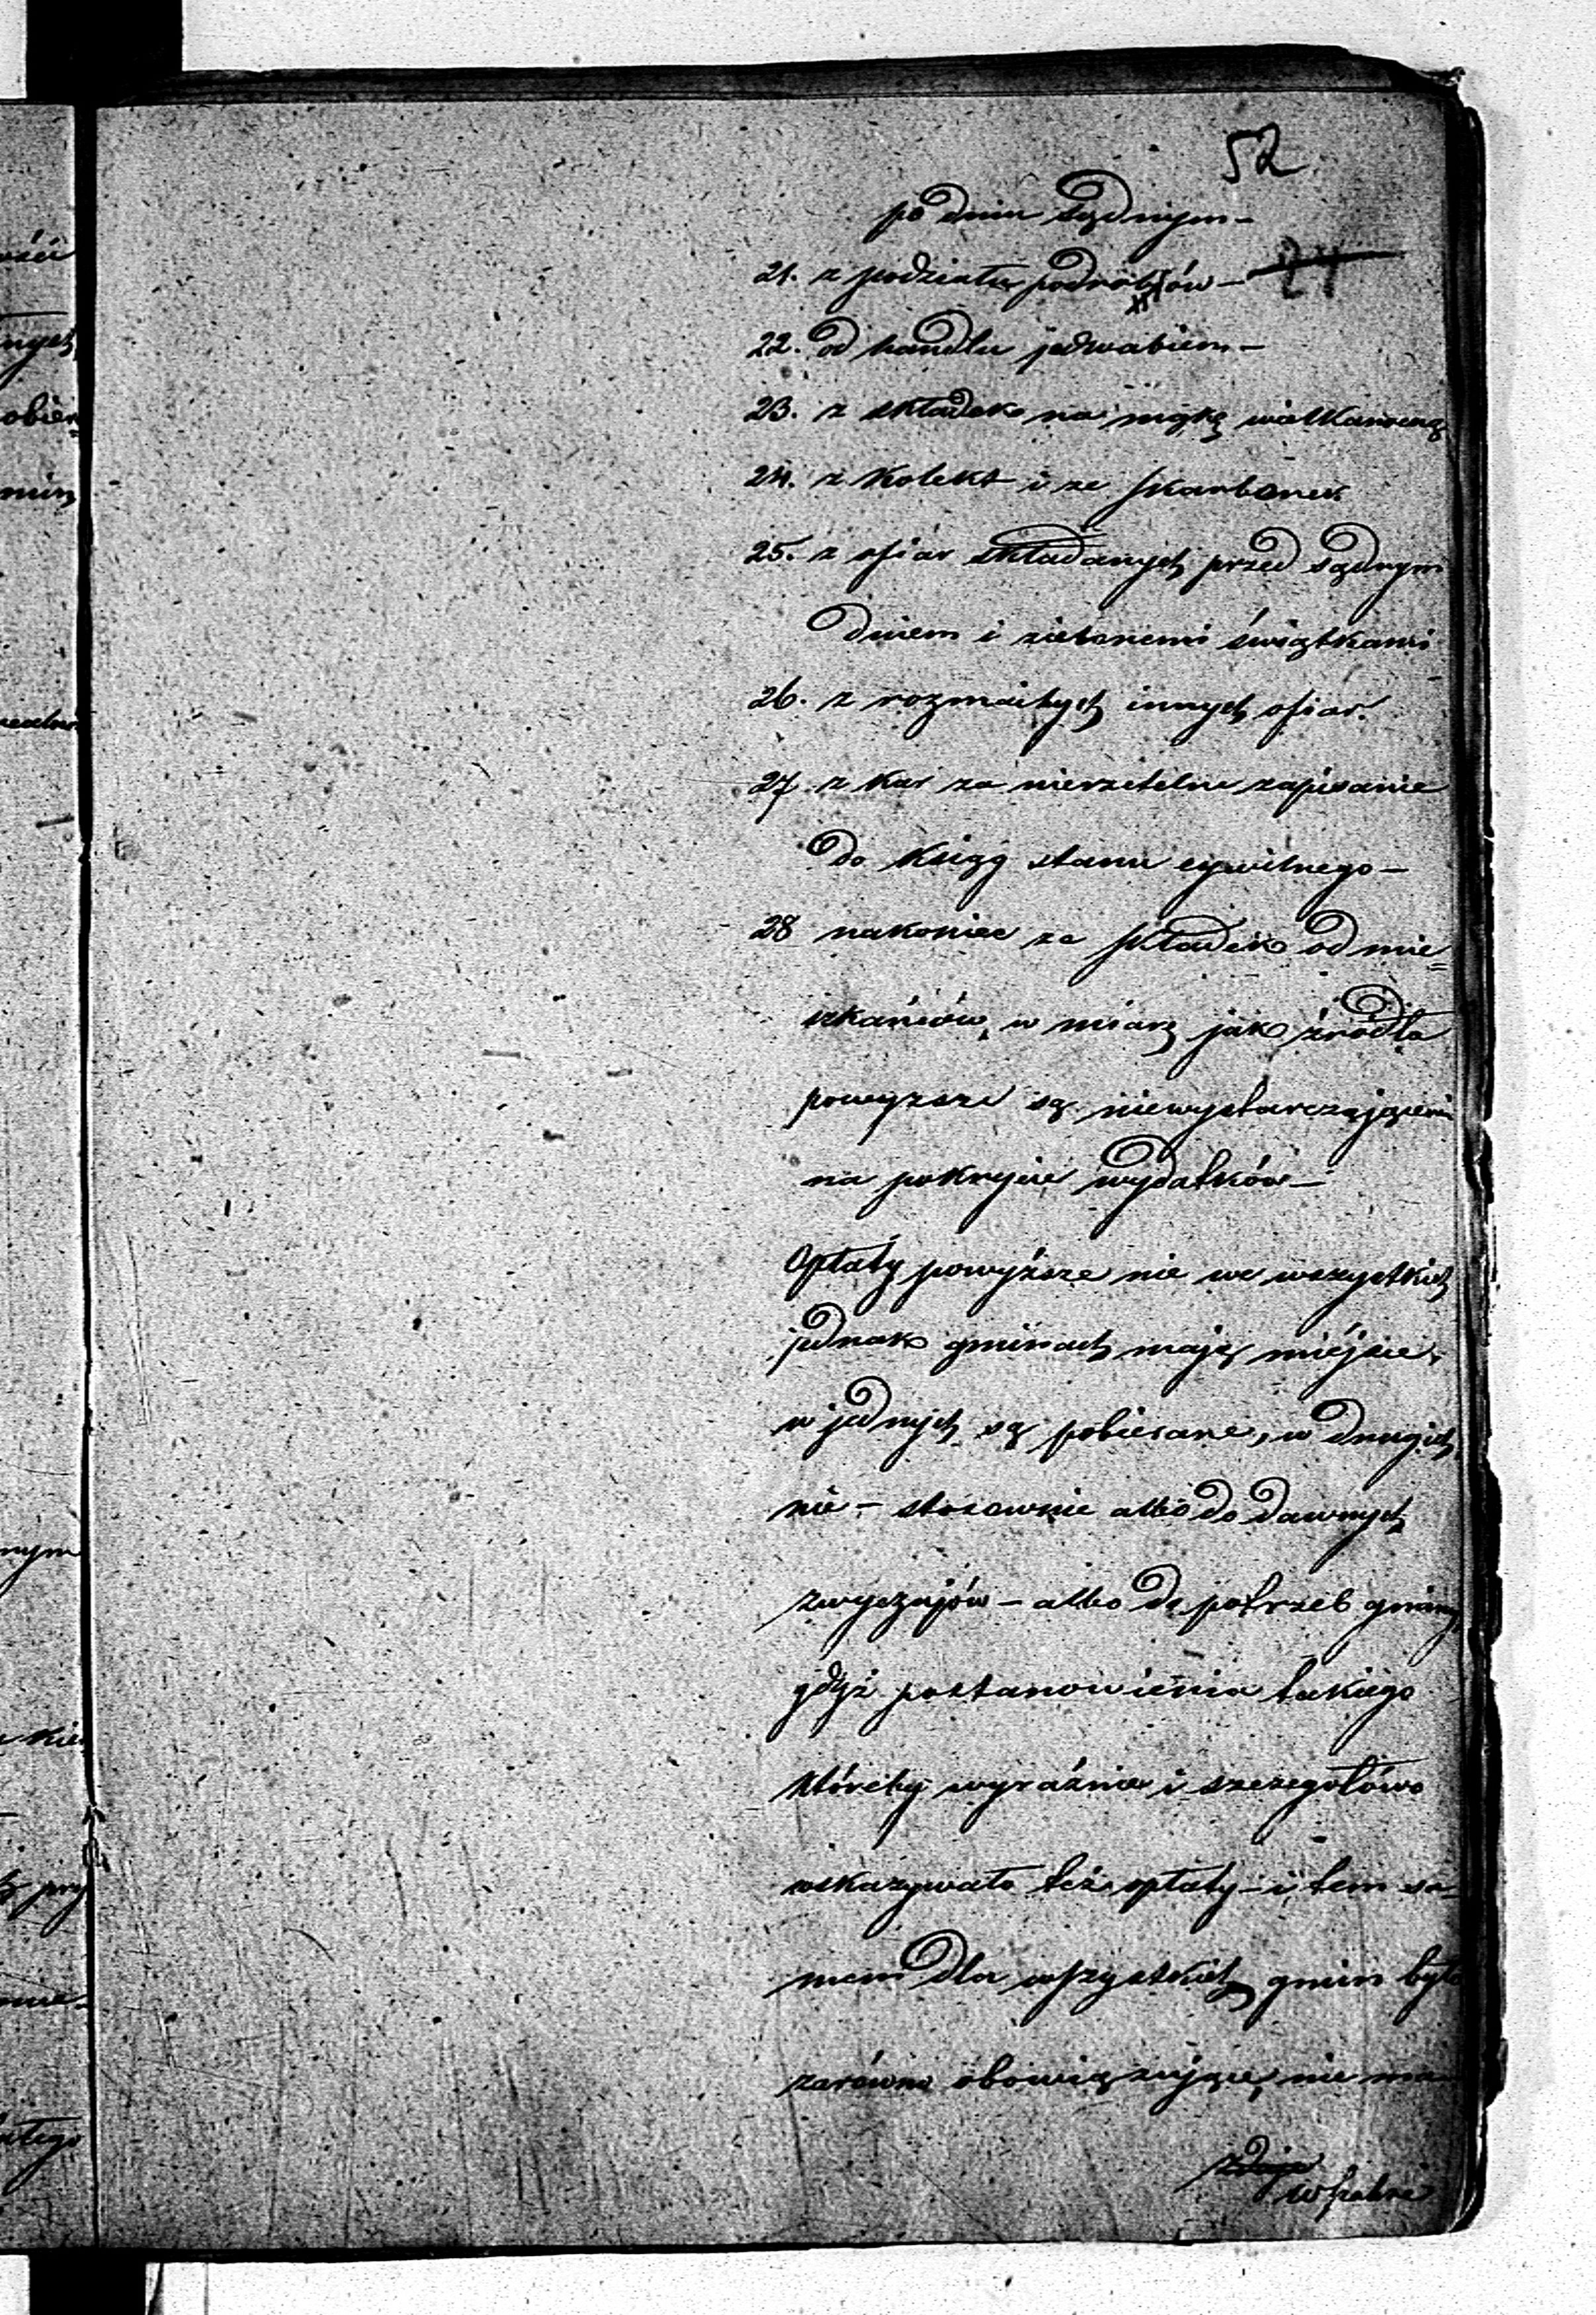 52
po dniu sądnym –
21. z podziału podrobków – 24
22. od handlu jedwabiem –
23. z składek na mąkę wielkanocną
24. z kolekt i ze skarbonek
25. z ofiar składanych przed sądnym
dniem i zielonemi świątkami
26. z rozmaitych innych ofiar.
27. z kar za nierzetelne zapisanie
do ksiąg stanu cywilnego –
28 nakoniec ze składek od mie=
szkańców, w miarę jak źródła
powyższe są niewystarczającemi
na pokrycie wydatków –
Opłaty powyższe nie we wszystkich
jednak gminach mają miejsce,
w jednych są pobierane, w drugich
nie – stosownie albo do dawnych
zwyczajów – albo do potrzeb gminy
gdyż postanowienia takiego
któreby wyraźnie i szczegółowo
wskazywało też opłaty – i tem sa-
mem dla wszystkich gmin było
zarówno obowiązujące, nie ma